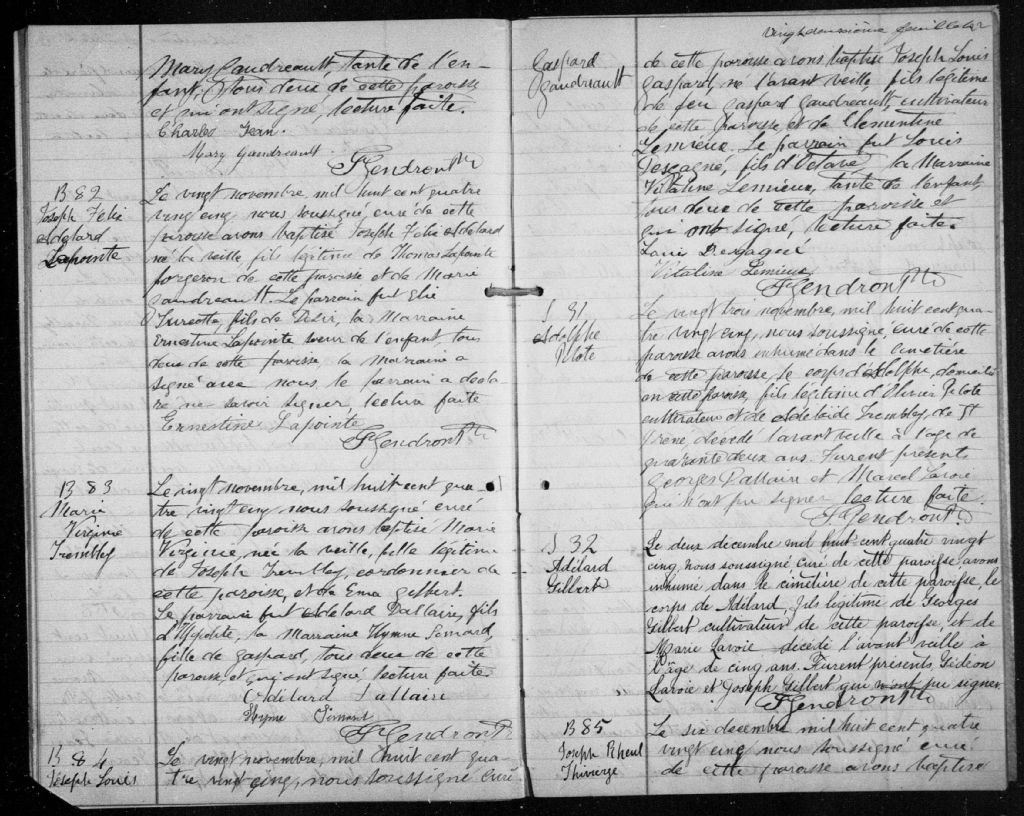 Mary Gaudreault, tante de l'en-
fant, tous deux de cette paroisse
et qui ont signé, lecture faite.
Charles Jean.
Mary Gaudreault.
Gendron Ptr
B 82
Joseph Felie
Adelard
Lapointe
Le vingt novembre mil huit cent quatre
vingt cinq nous soussigné curé de cette
paroisse avons baptisé Joseph Felie Adelard
né la veille, fils légitime de Thomas Lapointe
forgeron de cette paroisse et de Marie
Gaudreault. Le parrain fut Elie
Turcotte, fils de Desir, la Marraine
Ernestine Lapointe soeur de l'enfant, tous
deux de cette paroisse, la Marraine a
signé avec nous, le parrain a décla-
ré ne savoir signer, lecture faite
Ernestine Lapointe
Gendron Ptr
B 83
Marie
Virginie
Trembley
Le vingt novembre, mil huit cent qua-
tre vingt cinq nous soussigné curé
de cette paroisse avons baptisé Marie
Virginie, née la veille, fille légitime
de Joseph Trembley, cordonnier de
cette paroisse, et de Ema Gilbert.
Le parrain fut Adelard Dallaire, fils
d'Hypolite, la Marraine Hymne Simard,
fille de Gaspard, tous deux de cette
paroisse, et qui ont signé, lecture faite.
Adélard Dallaire
Hyme Simard
Gendron Ptr
B 84
Joseph Louis
Le vingt novembre, mil huit cent qua-
tre vingt cinq, nous soussigné curé
vingt deuxième feuillet
Gaspard
Gaudreault
de cette paroisse avons baptisé Joseph Louis
Gaspard, né l'avant veille, fils légitime
de feu Gaspard Gaudreault, cultivateur
de cette paroisse, et de Clementine
Lemieux. Le parrain fut Louis
Desgagné, fils d'Octave la Marraine
Vitaline Lemieux, tante de l'enfant,
tous deux de cette paroisse et
qui ont signé, lecture faite.
Louis Desgagné
Vitaline Lemieux
Gendron Ptr
S 31
Adolphe
Pilote
Le vingt trois novembre, mil huit cent qua-
tre vingt cinq, nous soussigné, curé de cette
paroisse avons inhumé dans le cimetière
de cette paroisse, le corps d'Adolphe, domicilié
en cette paroisse, fils légitime d'Olivier Pilote
cultivateur et de Adelaide Trembley, de St
Irène, décédé l'avant veille à l'age de
quarante deux ans. Furent présents
Georges Dallaire et Marcel Lavoie
qui n'ont pu signer, lecture faite.
Gendron Ptr
S 32
Adilard
Gilbert
Le deux decembre mil huit cent quatre vingt
cinq, nous soussigné curé de cette paroisse, avons
inhumé dans le cimetière de cette paroisse, le
corps de Adilard, fils légitime de Georges
Gilbert cultivateur de cette paroisse, et de
Marie Lavoie décédé l'avant veille à
l'âge de cinq ans. Furent présents, Gédéon
Lavoie et Joseph Gilbert qui n'ont pu signer
Gendron Ptr
B 85
Joseph
Thivierge
Le six decembre, mil huit cent quatre
vingt cinq nous soussigné curé
de cette paroisse avons baptisé